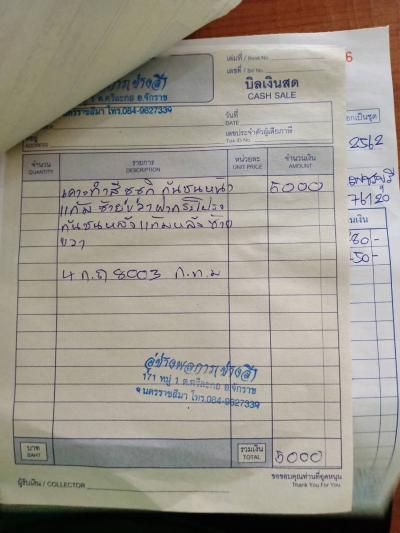 เล่มที่ / Book No.
เลขที่ / Bill No.
บิลเงินสด
CASH SALE
1 ต.ศรีละกอ อ.จักราช
นครราชสีมา โทร.084-9627339
วันที่
DATE
เลขประจำตัวผู้เสียภาษี
Tax ID No.
ADDRESS
2562
76120
จำนวน
QUANTITY
รายการ
DESCRIPTION
หน่วยละ
UNIT PRICE
จำนวนเงิน
AMOUNT
เคาะทำสี ซูซูกิ กันชนหน้า 5000
แก้ม ซ้ายขวา ฝากระโปรง
กันชนหลัง แก้มหลัง ซ้าย
ขวา
8003 ก.ท.ม
อู่ช่างพลการ(ช่างสี)
171 หมู่ 1 ต.ศรีละกอ อ.จักราช
จ.นครราชสีมา โทร.084-9627339
บาท
BAHT
รวมเงิน
TOTAL
5000
ผู้รับเงิน / COLLECTOR
ขอขอบคุณท่านที่อุดหนุน
Thank You For You